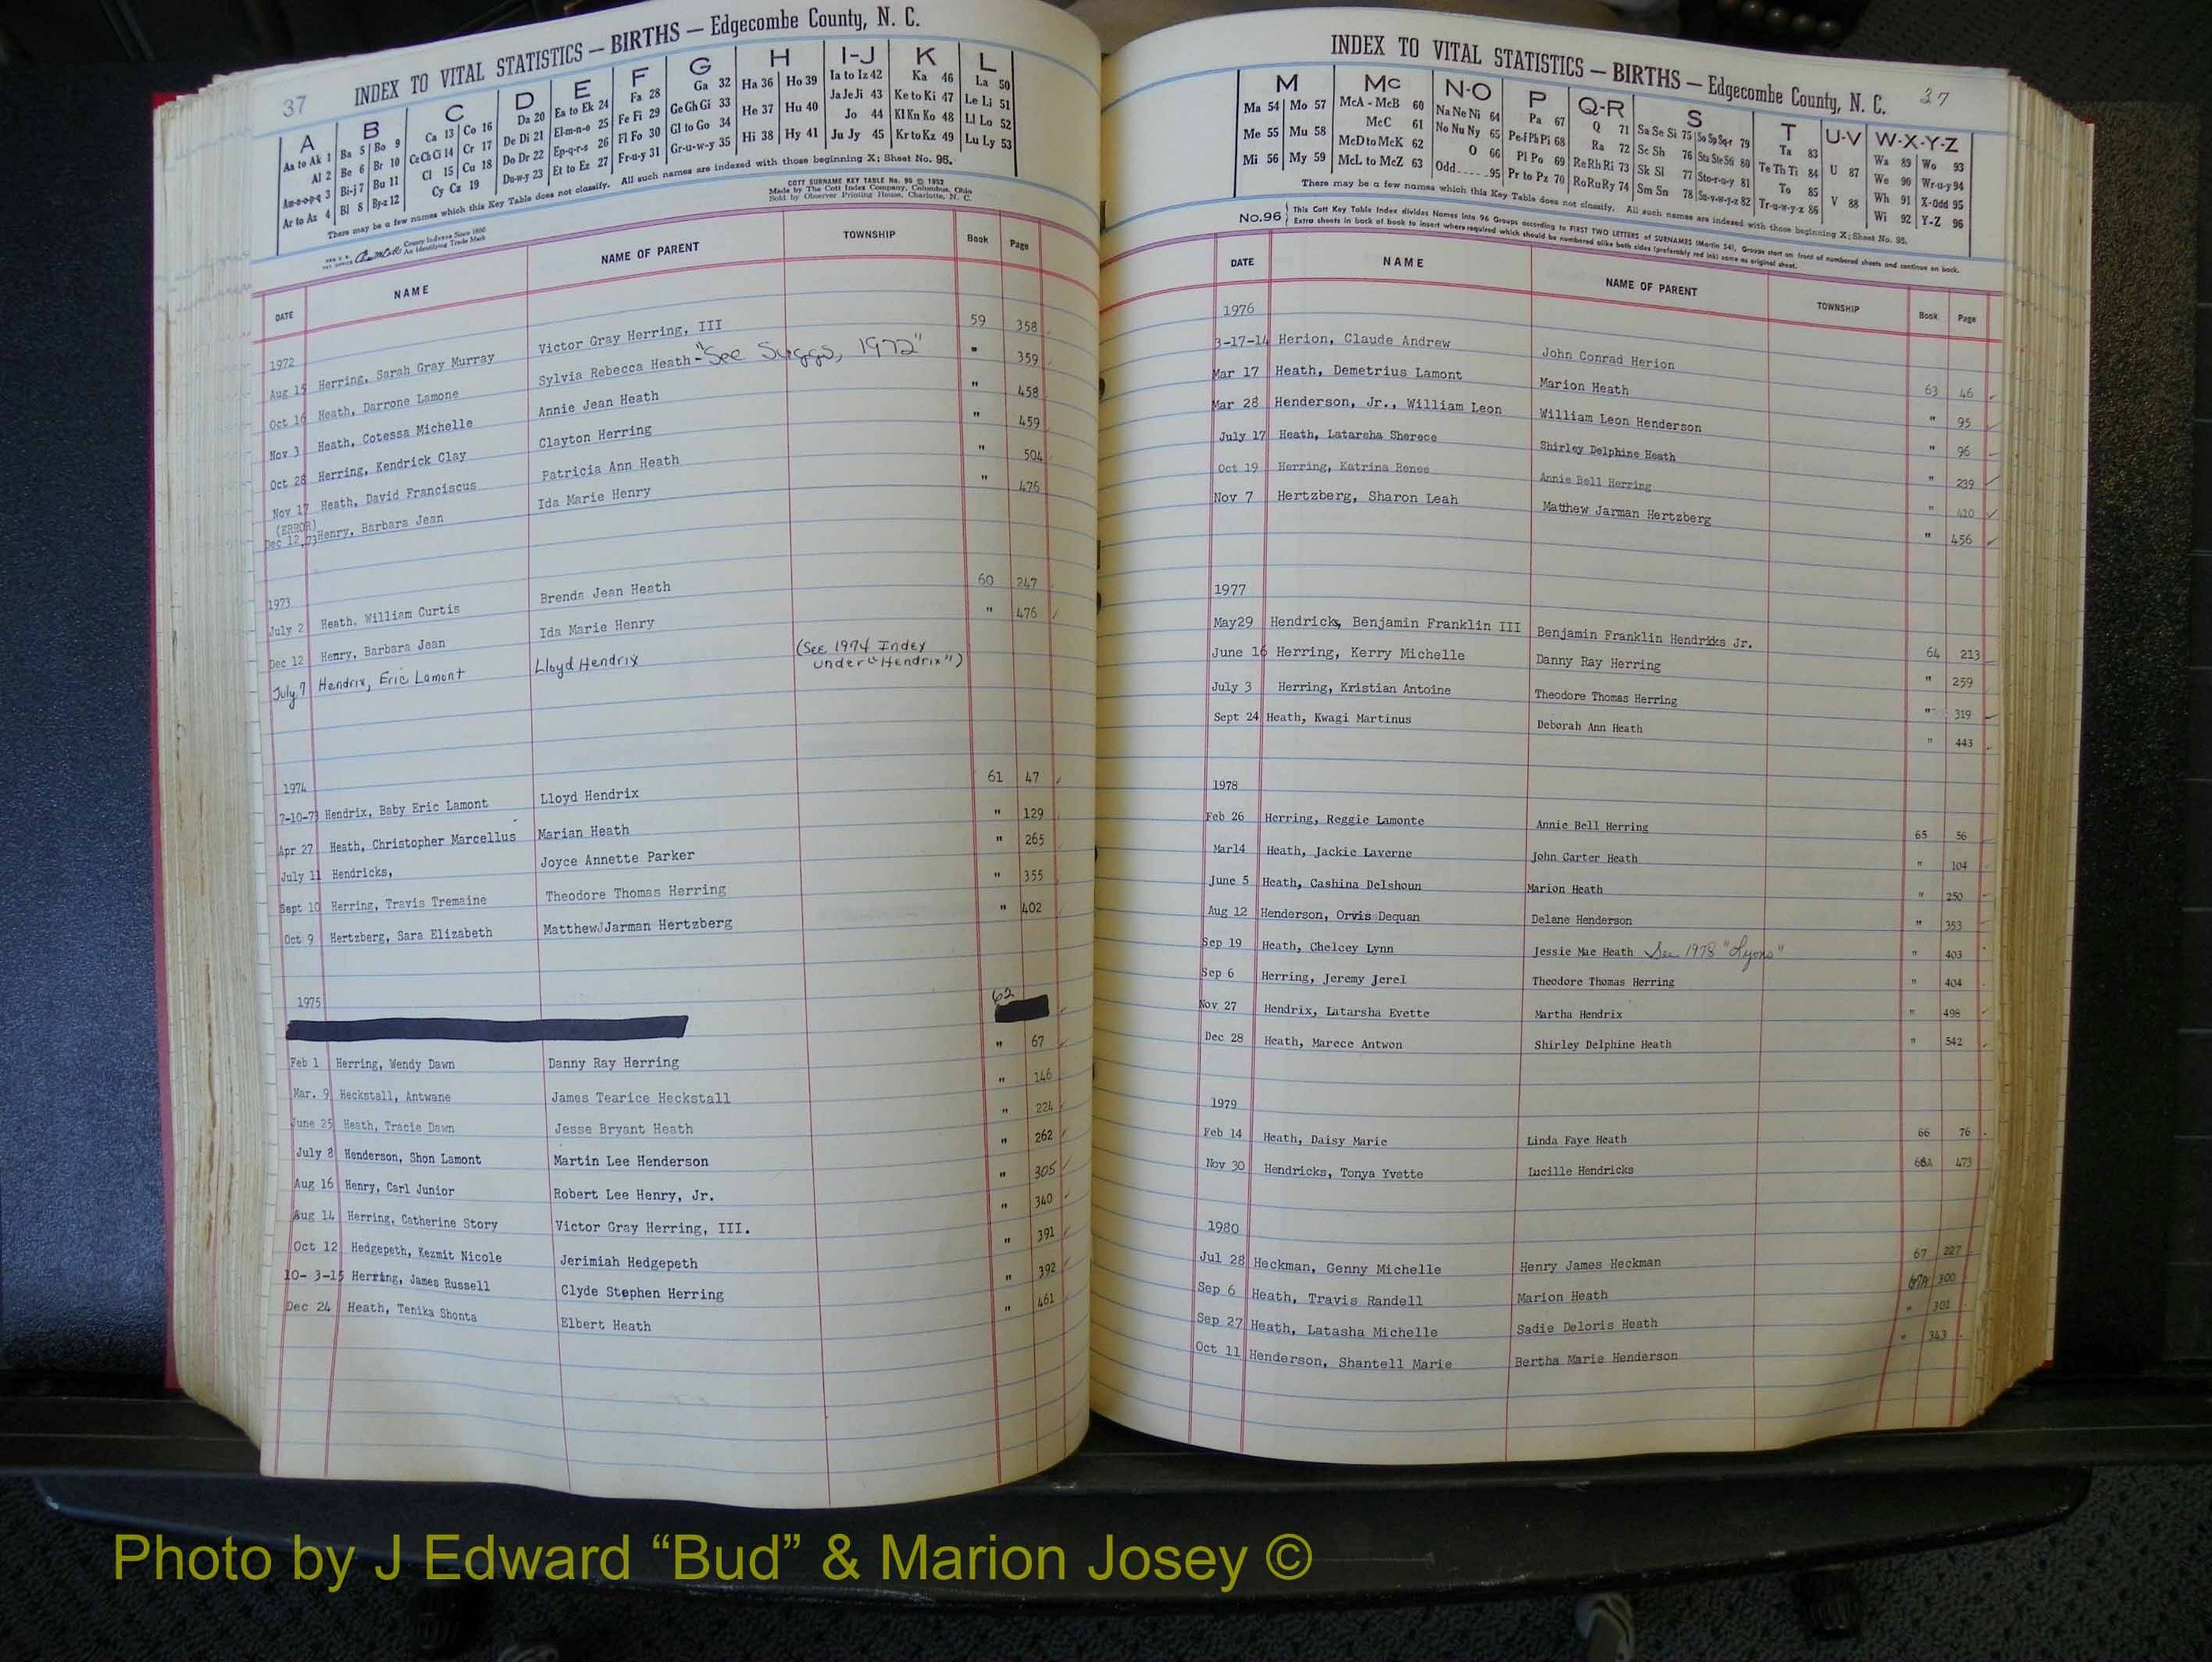 37
INDEX TO VITAL STATISTICS — BIRTHS — Edgecombe County, N. C.
A B C D E F G H I-J K L
Aa to Ak 1 Ba 5 Bo 9 Ca 13 Co 16 Da 20 Ea to Ek 24 Fa 28 Ga 32 Ha 36 Ho 39 Ia to Iz 42 Ka 46 La 50
Al 2 Be 6 Br 10 Ce Ch Ci 14 Cr 17 De Di 21 El-m-n-o 25 Fe Fi 29 Ge Gh Gi 33 He 37 Hu 40 Ja Je Ji 43 Ke to Ki 47 Le Li 51
Am-n-o-p-q 3 Bi-j 7 Bu 11 Cl 15 Cu 18 Do Dr 22 Ep-q-r-s 26 Fl Fo 30 Gl to Go 34 Hi 38 Hy 41 Jo 44 Kl Kn Ko 48 Ll Lo 52
Ar to Az 4 Bl 8 By-z 12 Cy Cz 19 Du-w-y 23 Et to Ez 27 Fr-u-y 31 Gr-u-w-y 35 Ju Jy 45 Kr to Kz 49 Lu Ly 53
There may be a few names which this Key Table does not classify. All such names are indexed with those beginning X; Sheet No. 95.
COTT SURNAME KEY TABLE No. 96 © 1952
Made by The Cott Index Company, Columbus, Ohio
Sold by Observer Printing House, Charlotte, N. C.
County Indexes Since 1888
An Identifying Trade Mark
DATE NAME NAME OF PARENT TOWNSHIP Book Page
1972
Aug 15 Herring, Sarah Gray Murray Victor Gray Herring, III 59 358
Oct 16 Heath, Darrone Lamone Sylvia Rebecca Heath - "See Suggs, 1972" " 359
Nov 3 Heath, Cotessa Michelle Annie Jean Heath " 458
Oct 28 Herring, Kendrick Clay Clayton Herring " 459
Nov 17 Heath, David Franciscus Patricia Ann Heath " 504
(ERROR)
Dec 12,73 Henry, Barbara Jean Ida Marie Henry " 476
1973
July 2 Heath, William Curtis Brenda Jean Heath 60 247
Dec 12 Henry, Barbara Jean Ida Marie Henry " 476
July 7 Hendrix, Eric Lamont Lloyd Hendrix (See 1974 Index
under "Hendrix")
1974
7-10-73 Hendrix, Baby Eric Lamont Lloyd Hendrix 61 47
Apr 27 Heath, Christopher Marcellus Marian Heath " 129
July 11 Hendricks, Joyce Annette Parker " 265
Sept 10 Herring, Travis Tremaine Theodore Thomas Herring " 355
Oct 9 Hertzberg, Sara Elizabeth MatthewJJarman Hertzberg " 402
1975
62
Feb 1 Herring, Wendy Dawn Danny Ray Herring " 67
Mar. 9 Heckstall, Antwane James Tearice Heckstall " 146
June 25 Heath, Tracie Dawn Jesse Bryant Heath " 224
July 8 Henderson, Shon Lamont Martin Lee Henderson " 262
Aug 16 Henry, Carl Junior Robert Lee Henry, Jr. " 305
Aug 14 Herring, Catherine Story Victor Gray Herring, III. " 340
Oct 12 Hedgepeth, Kezmit Nicole Jerimiah Hedgepeth " 391
10- 3-15 Herring, James Russell Clyde Stephen Herring " 392
Dec 24 Heath, Tenika Shonta Elbert Heath " 461
INDEX TO VITAL STATISTICS — BIRTHS — Edgecombe County, N. C.
37
M Mc N-O P Q-R S T U-V W-X-Y-Z
Ma 54 Mo 57 McA - McB 60 Na Ne Ni 64 Pa 67 Q 71 Sa Se Si 75 So Sp Sq-r 79 Ta 83 U 87 Wa 89 Wo 93
Me 55 Mu 58 McC 61 No Nu Ny 65 Pe-f Ph Pi 68 Ra 72 Sc Sh 76 Sta Ste Sti 80 Te Th Ti 84 V 88 We 90 Wr-u-y 94
Mi 56 My 59 McD to McK 62 O 66 Pl Po 69 Re Rh Ri 73 Sk Sl 77 Sto-r-u-y 81 To 85 Wh 91 X-Odd 95
McL to McZ 63 Odd 95 Pr to Pz 70 Ro Ru Ry 74 Sm Sn 78 Su-v-w-y-z 82 Tr-u-w-y-z 86 Wi 92 Y-Z 96
There may be a few names which this Key Table does not classify. All such names are indexed with those beginning X; Sheet No. 95.
No.96 This Cott Key Table Index divides Names into 96 Groups according to FIRST TWO LETTERS of SURNAMES (Martin 54). Groups start on front of numbered sheets and continue on back.
Extra sheets in back of book to insert where required which should be numbered alike both sides (preferably red ink) same as original sheet.
DATE NAME NAME OF PARENT TOWNSHIP Book Page
1976
3-17-14 Herion, Claude Andrew John Conrad Herion 63 46
Mar 17 Heath, Demetrius Lamont Marion Heath " 95
Mar 28 Henderson, Jr., William Leon William Leon Henderson " 96
July 17 Heath, Latarsha Sherece Shirley Delphine Heath " 239
Oct 19 Herring, Katrina Renee Annie Bell Herring " 410
Nov 7 Hertzberg, Sharon Leah Matthew Jarman Hertzberg " 456
1977
May29 Hendricks, Benjamin Franklin III Benjamin Franklin Hendricks Jr. 64 213
June 16 Herring, Kerry Michelle Danny Ray Herring " 259
July 3 Herring, Kristian Antoine Theodore Thomas Herring " 319
Sept 24 Heath, Kwagi Martinus Deborah Ann Heath " 443
1978
Feb 26 Herring, Reggie Lamonte Annie Bell Herring 65 56
Mar14 Heath, Jackie Laverne John Carter Heath " 104
June 5 Heath, Cashina Delshoun Marion Heath " 250
Aug 12 Henderson, Orvis Dequan Delane Henderson " 353
Sep 19 Heath, Chelcey Lynn Jessie Mae Heath See 1978 "Lyons" " 403
Sep 6 Herring, Jeremy Jerel Theodore Thomas Herring " 404
Nov 27 Hendrix, Latarsha Evette Martha Hendrix " 498
Dec 28 Heath, Marece Antwon Shirley Delphine Heath " 542
1979
Feb 14 Heath, Daisy Marie Linda Faye Heath 66 76
Nov 30 Hendricks, Tonya Yvette Lucille Hendricks 66A 473
1980
Jul 28 Heckman, Genny Michelle Henry James Heckman 67 227
Sep 6 Heath, Travis Randell Marion Heath 67A 300
Sep 27 Heath, Latasha Michelle Sadie Deloris Heath " 301
Oct 11 Henderson, Shantell Marie Bertha Marie Henderson " 343
Photo by J Edward “Bud” & Marion Josey ©